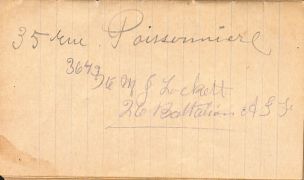 35 rue Poissonniere
3643
M J Lockett
26 Battalion A I F